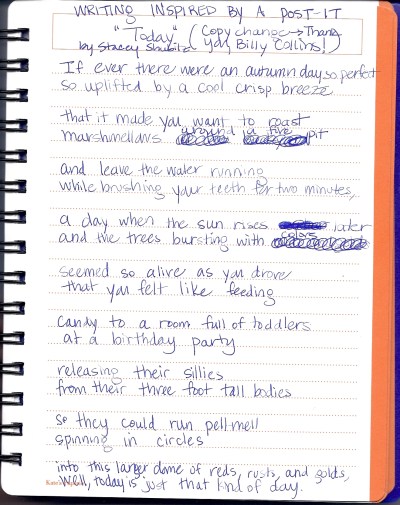 WRITING INSPIRED BY A POST-IT
"Today" (Copy change → Thank
by Stacey Shubitz you, Billy Collins!)
If ever there were an autumn day so perfect
so uplifted by a cool crisp breeze
that it made you want to roast
marshmellows around a fire pit
and leave the water running
while brushing your teeth for two minutes,
a day when the sun rises later
and the trees bursting with colors
seemed so alive as you drove
that you felt like feeding
candy to a room full of toddlers
at a birthday party
releasing their sillies
from their three foot tall bodies
so they could run pellmell
spinning in circles
into this larger dome of reds, rusts, and golds,
well, today is just that kind of day.